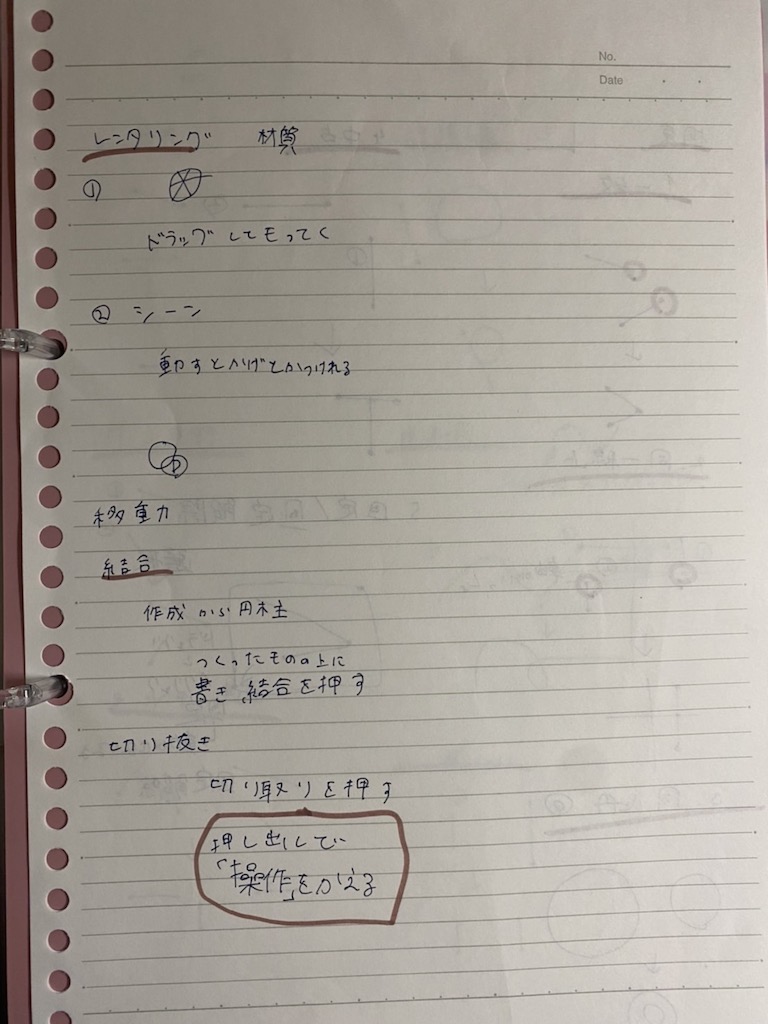 No.
Date
レンダリング 材質
①
ドラッグしてもってく
② シーン
動すとかげとかつけれる
移動
結合
作成から円柱
つくったものの上に
書き、結合を押す
切り抜き
切り取りを押す
押し出しで
「操作」をかえる